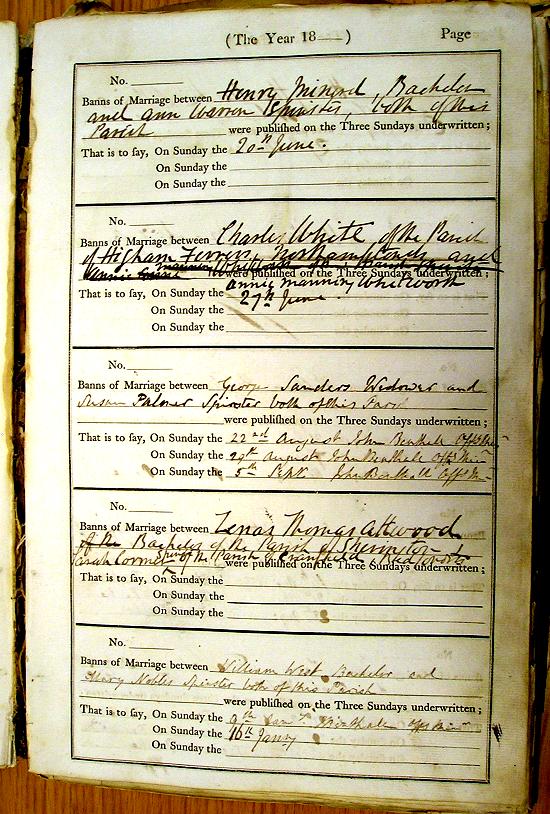 (The Year 18——) Page
No.
Banns of Marriage between Henry Minord, Bachelor
and Ann Warren Spinster, both of this
Parish were published on the Three Sundays underwritten;
That is to say, On Sunday the 20th June.
On Sunday the
On Sunday the
No.
Banns of Marriage between Charles White of the Parish
of Higham Ferrers, Northampton and
Annie were published on the Three Sundays underwritten;
Annie Manning Whitworth
That is to say, On Sunday the 27th June
On Sunday the
On Sunday the
No.
Banns of Marriage between George Sanders Widower and
Susan Palmer Spinster both of this Parish
were published on the Three Sundays underwritten;
That is to say, On Sunday the 22nd August John Benthall Offg Minr
On Sunday the 29th August John Benthall Offg Minr
On Sunday the 5th Sept John Benthall Offg Mr
No.
Banns of Marriage between Zenas Thomas Attwood
of the Bachelor of the Parish of Sherington &
Sarah Spinr of the Parish of were published on the Three Sundays underwritten;
That is to say, On Sunday the
On Sunday the
On Sunday the
No.
Banns of Marriage between William West Bachelor and
Mary Nobles Spinster both of this Parish
were published on the Three Sundays underwritten;
That is to say, On Sunday the 9th Jany Benthall Offg Minr
On Sunday the 16th Jany
On Sunday the